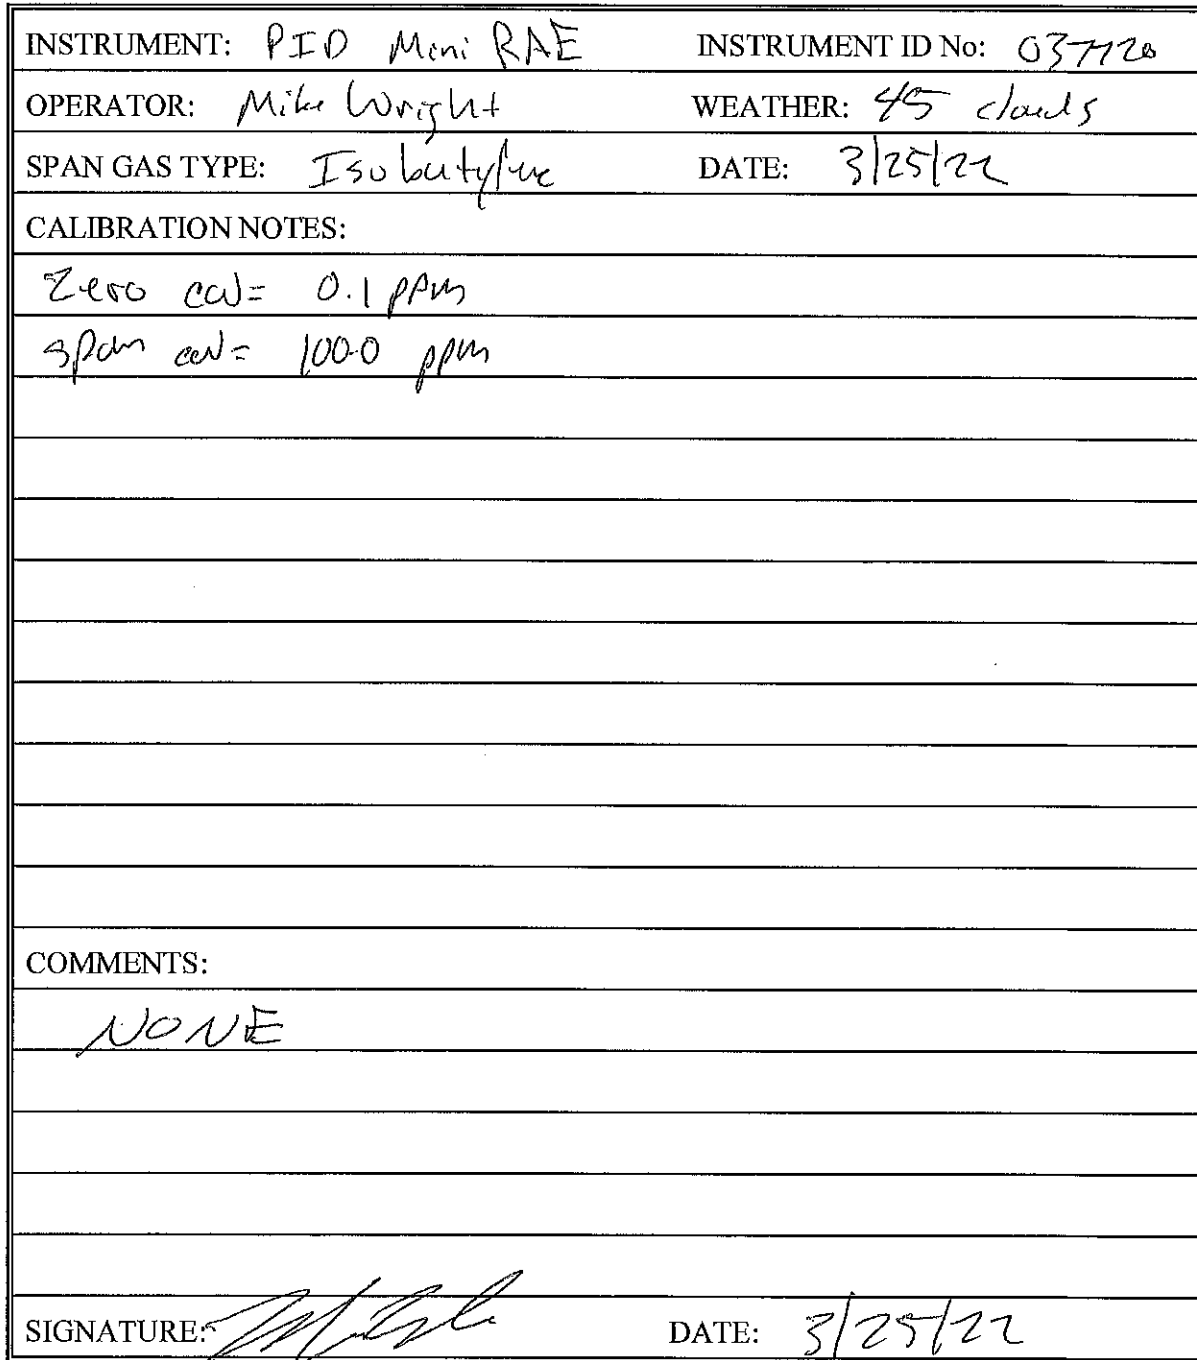 INSTRUMENT: PID Mini RAE INSTRUMENT ID No: 037120
OPERATOR: Mike Wright WEATHER: 45 clouds
SPAN GAS TYPE: Isobutylene DATE: 3/25/22
CALIBRATION NOTES:
Zero cal= 0.1 ppm
span cal= 100.0 ppm
COMMENTS:
NONE
SIGNATURE: DATE: 3/25/22